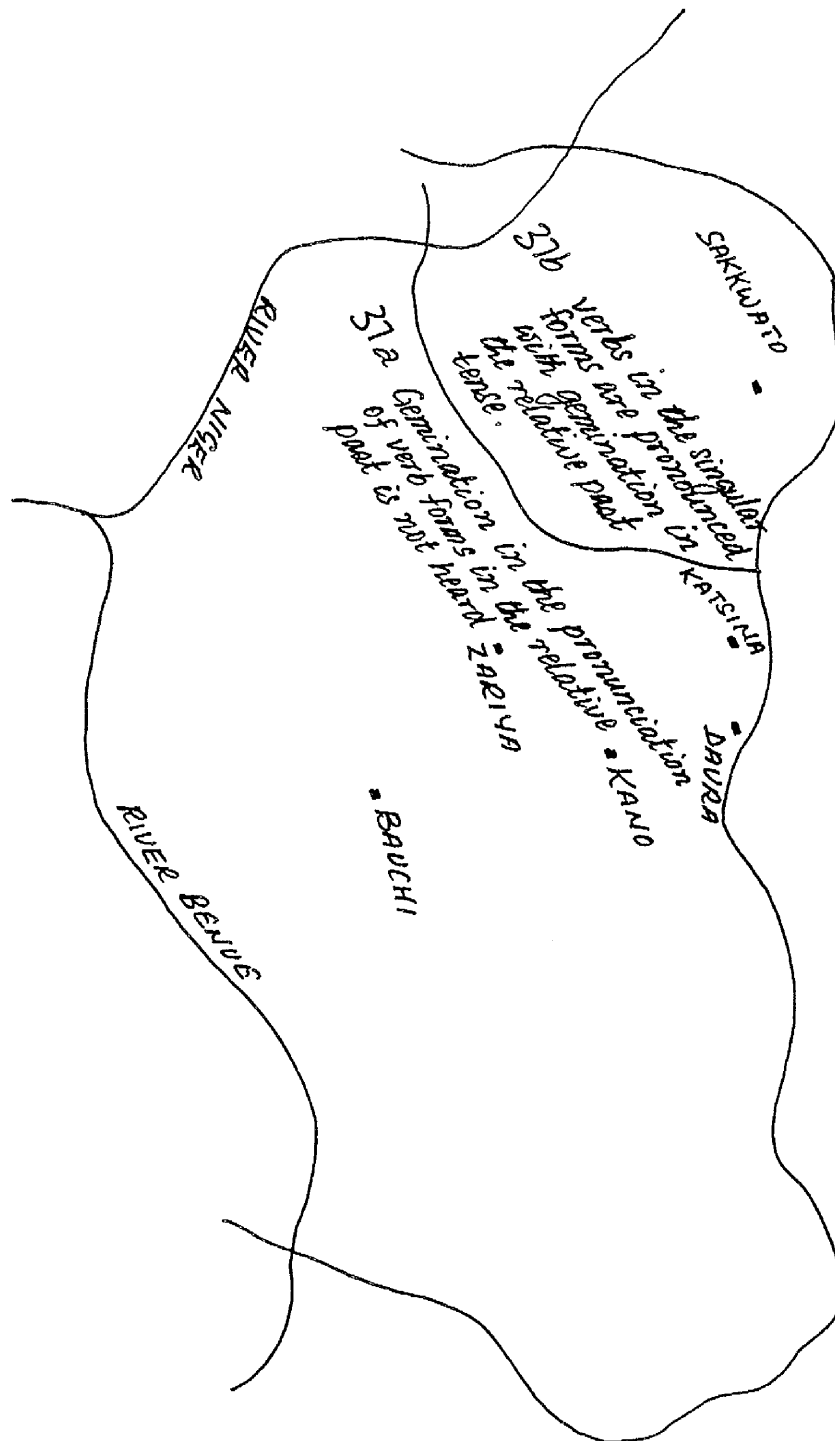 SAKKWATO
37b verbs in the singular
forms are pronounced
with gemination in
the relative past
tense.
KATSINA
DAURA
37a Gemination in the pronunciation
of verb forms in the relative
past is not heard
ZARIYA
KANO
BAUCHI
RIVER NIGER
RIVER BENUE